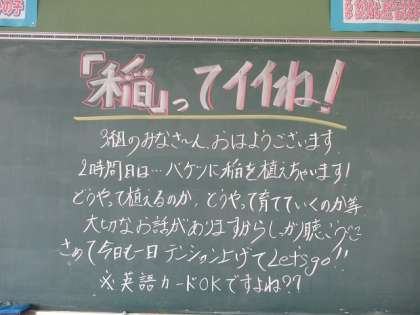 「稲」ってイイね！
3組のみなさ〜ん、おはようございます
2時間目は…バケツに稲を植えちゃいます！
どうやって植えるのか、どうやって育てていくのか等
大切なお話がありますからしっかり聴こうぞ
さめて今日も一日テンション上げてLet's go!!
※英語カードOKですよね??